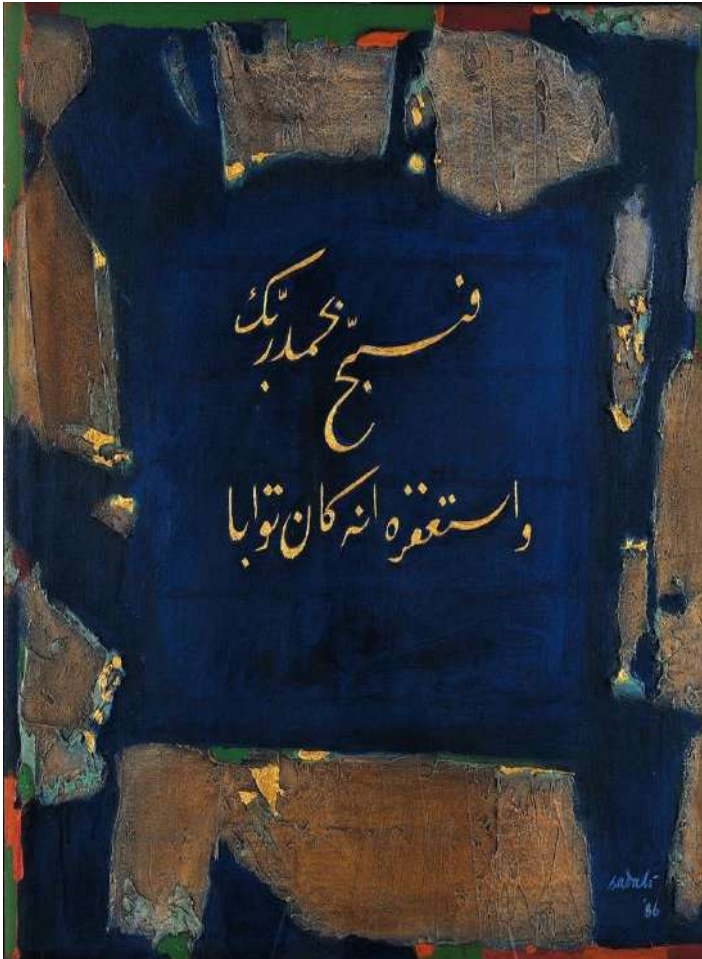 فسبّح بحمد ربّك
واستغفره انه كان توابا
sadali
'86